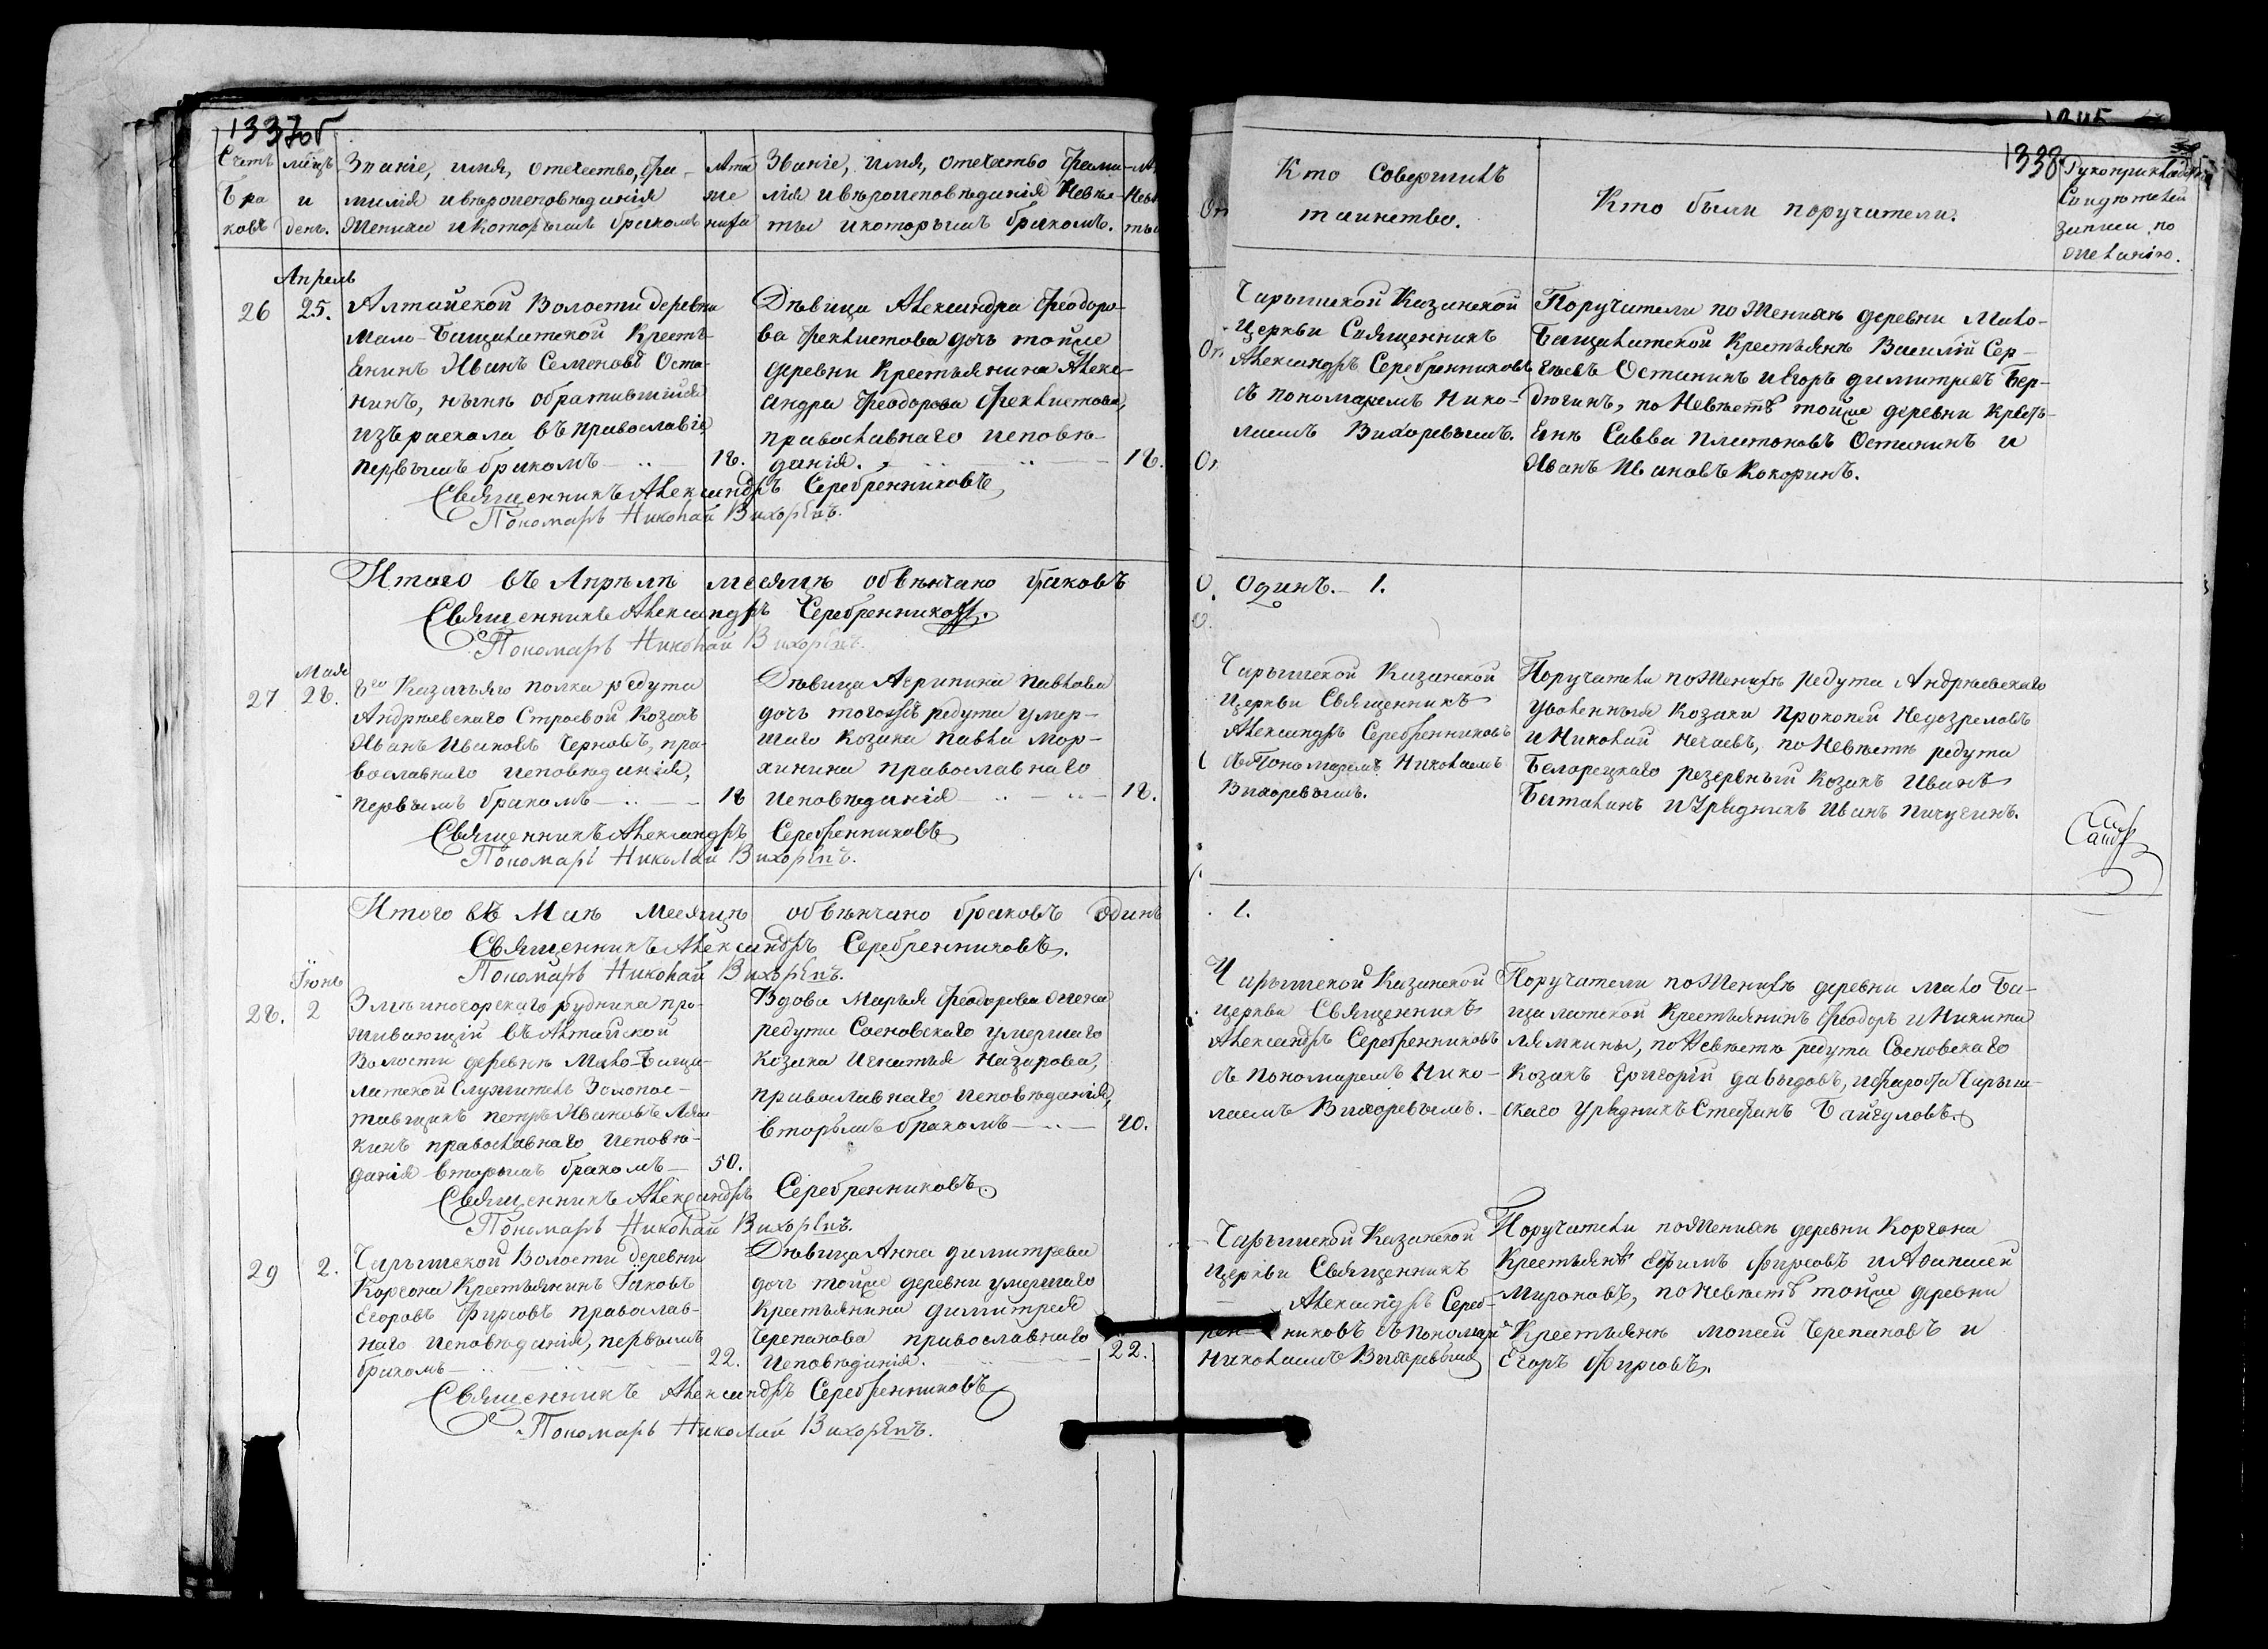 1337об
Счетъ
бра
ковъ
мѣцъ
и
день.
Званіе, имя, отечество, фа-
милія и вѣроисповѣданія
жениха и которымъ бракомъ
Лѣта
же
ниха
Званіе, имя, отечество фами-
лія и вѣроисповѣданія невѣс-
ты и которымъ бракомъ.
Апрель
26
25.
Алтайской Волости деревни
Мало-Бащалатской Кресть-
янинъ Иванъ Семеновъ Оста-
нинъ, нынѣ обратившійся
изъ раскола въ православіе,
первымъ бракомъ
18.
Дѣвица Александра Феодоро-
ва Феклистова дочь тойже
деревни Крестьянина Алекс-
андра Феодорова Феклистова,
православнаго исповѣ-
данія.
18.
Священникъ Александръ Серебренниковъ
Пономарь Николай Вихоревъ.
Итого въ Апрѣлѣ месяцѣ обвѣнчано браковъ
Священникъ Александръ Серебренниковъ.
Пономарь Николай Вихоревъ.
Мая
27
28.
8го Казачьяго полка редута
Андрѣевскаго Строевой Козакъ
Иванъ Ивановъ Черновъ, пра-
вославнаго исповѣданія,
первымъ бракомъ
18
Дѣвица Агрипина Павлова
дочь тогожъ редута умер-
шаго Козака Павла Мор-
хинина православнаго
исповѣданія
18.
Священникъ Александръ Серебренниковъ
Пономарь Николай Вихоревъ.
Итого въ Маѣ месяцѣ обвѣнчано браковъ один
Священникъ Александръ Серебренниковъ.
Пономарь Николай Вихоревъ.
Іюнь
28.
2
Змѣиногорскаго рудника про-
живающій въ Алтайской
Волости деревнѣ Мало-Баща-
латской Служитель Золопос-
тавщикъ Петръ Ивановъ Лям-
кинъ православнаго исповѣ-
данія вторымъ бракомъ
50.
Вдова Марья Феодорова жена
редута Сосновскаго умершаго
Козака Игнатья Назарова,
православнаго исповѣданія,
вторымъ бракомъ
40.
Священникъ Александръ Серебренниковъ.
Пономарь Николай Вихоревъ.
29
2.
Чарышской Волости деревни
Коргона Крестьянинъ Іаковъ
Егоровъ Фирсовъ православ-
наго исповѣданія, первымъ
бракомъ
22.
Дѣвица Анна Димитрева
дочь тойже деревни умершаго
Крестьянина Димитрея
Черепанова православнаго
исповѣданія.
22.
Священникъ Александръ Серебренниковъ
Пономарь Николай Вихоревъ.
1338
Кто совершилъ
таинство.
Кто были поручатели.
Рукоприкладство
Свидѣтелей
записи по
желанію.
Чарышской Казанской
Церкви Священникъ
Александръ Серебренниковъ
съ пономаремъ Нико-
лаемъ Вихоревымъ.
Поручатели по женихѣ деревни Мало-
Бащалатской Крестьянѣ Василій Сер-
гѣевъ Останинъ и Егоръ Димитревъ Бер-
дюгинъ, по невѣстѣ тойже деревни Кресть-
янѣ Савва Платоновъ Останинъ и
Иванъ Ивановъ Кокоринъ.
Одинъ. 1.
Чарышской Казанской
Церкви Священникъ
Александръ Серебренниковъ
съ Пономаремъ Николаемъ
Вихоревымъ.
Поручатели по женихѣ редута Андрѣевскаго
уволенныя Козаки Прокопей Недозреловъ
и Николай Нечаевъ, по невѣстѣ редута
Белорецкаго резервный Козакъ Иванъ
Баталинъ и Урядникъ Иванъ Пичугинъ.
1.
Чарышской Казанской
Церкви Священникъ
Александръ Серебренниковъ
съ пономаремъ Нико-
лаемъ Вихоревымъ.
Поручатели по женихѣ деревни Мало Ба-
щалатской Крестьянинъ Феодоръ и Никита
Лямкины, по невѣстѣ редута Сосновскаго
Козакъ Григорій Давыдовъ, и форпоста Чарыш-
скаго Урядникъ Стефанъ Байгуловъ.
Чарышской Казанской
Церкви Священникъ
Александръ Сереб-
рен-никовъ съ пономаремъ
Николаемъ Вихоревымъ
Поручатели по женихѣ деревни Коргона
Крестьянѣ Ефимъ Фирсовъ и Афанасей
Мироновъ, по невѣстѣ тойже деревни
Крестьянѣ Мопсей Черепановъ и
Егоръ Фирсовъ.